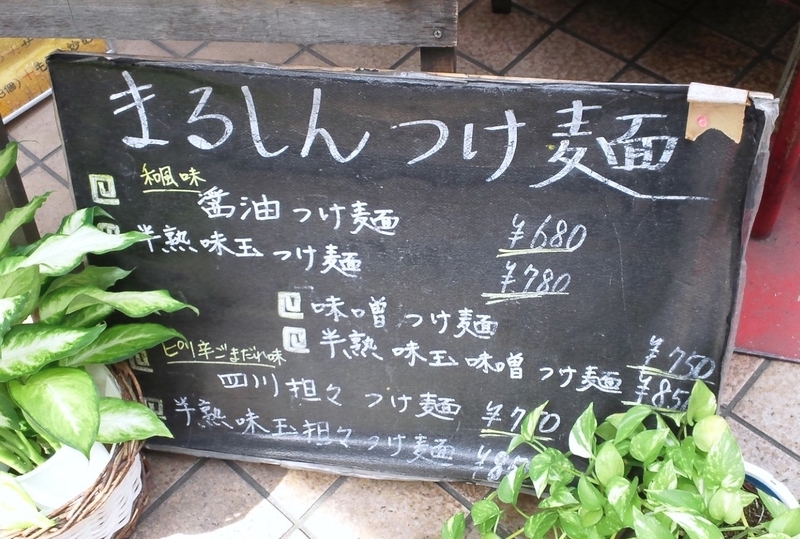 まるしん つけ麺
和風味
醤油 つけ麺 ¥680
半熟味玉 つけ麺 ¥780
味噌 つけ麺 ¥750
半熟 味玉 味噌 つけ麺
ピリ辛ごまだれ味
四川担々 つけ麺
半熟味玉担々つけ麺